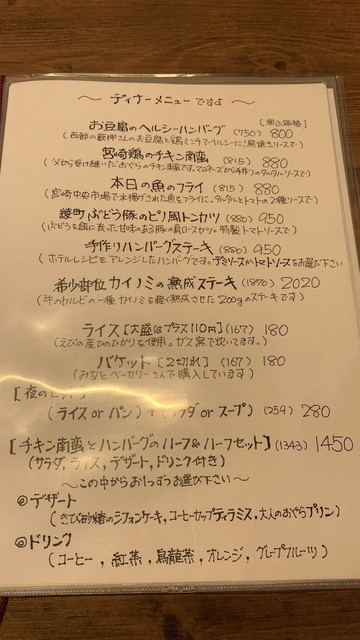 ～ ディナーメニューですよ ～
[税込価格]
お豆腐のヘルシーハンバーグ (750) 800
(西都の お豆腐と鶏ミンチでヘルシーに!照焼きソースで)
宮崎鶏のチキン南蛮 (815) 880
(父から受け継いだおぐらのチキン南蛮です。マヨネーズから手作りのタルタルソースで)
本日の魚のフライ (815) 880
(宮崎中央市場で水揚げされた魚をフライに。タルタルとトマトの2種ソースで)
綾町ぶどう豚のピリ風トンカツ (880) 950
(ぶどうを餌に育った甘味のある豚の肩ロースから。特製トマトソースで)
手作りハンバーグステーキ (880) 950
(ホテルレシピをアレンジしたハンバーグです。デミソースかトマトソースをお選び下さい)
希少部位 カイノミの熟成ステーキ (1870) 2020
(牛のカルビの一種 カイノミを軽く熟成させた 200gのステーキです)
ライス [大盛はプラス110円] (167) 180
(えびの産ひのひかりを使用。ガス窯で炊いてます。)
バケット [2切れ] (167) 180
(みなとベーカリーさんで購入しています)
[夜の
(ライス or パン) + (サラダ or スープ) (259) 280
[チキン南蛮とハンバーグのハーフ&ハーフセット] (1343) 1450
(サラダ, ライス, デザート, ドリンク付き)
～この中からお1つずつお選び下さい～
◎デザート
(きび砂糖のシフォンケーキ, コーヒーカップティラミス, 大人のおぐらプリン)
◎ドリンク
(コーヒー, 紅茶, 烏龍茶, オレンジ, グレープフルーツ)